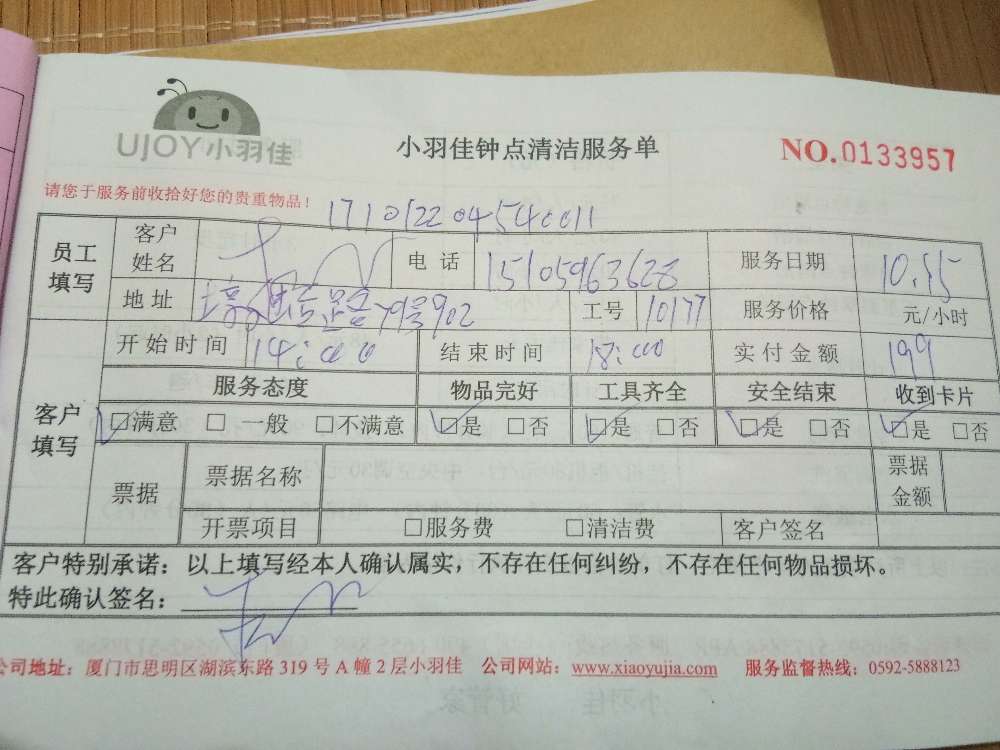 UJOY小羽佳
小羽佳钟点清洁服务单
NO.0133957
请您于服务前收拾好您的贵重物品！
员工填写 客户姓名 电话 15105963628 服务日期 10.15
地址 工号 10177 服务价格 元/小时
客户填写 开始时间 14:00 结束时间 18:00 实付金额 199
服务态度 物品完好 工具齐全 安全结束 收到卡片
☐满意 ☐一般 ☐不满意 ☐是 ☐否 ☐是 ☐否 ☐是 ☐否 ☐是 ☐否
票据 票据名称 票据金额
开票项目 ☐服务费 ☐清洁费 客户签名
客户特别承诺：以上填写经本人确认属实，不存在任何纠纷，不存在任何物品损坏。
特此确认签名：
公司地址：厦门市思明区湖滨东路 319 号 A 幢 2 层小羽佳 公司网站：www.xiaoyujia.com 服务监督热线：0592-5888123